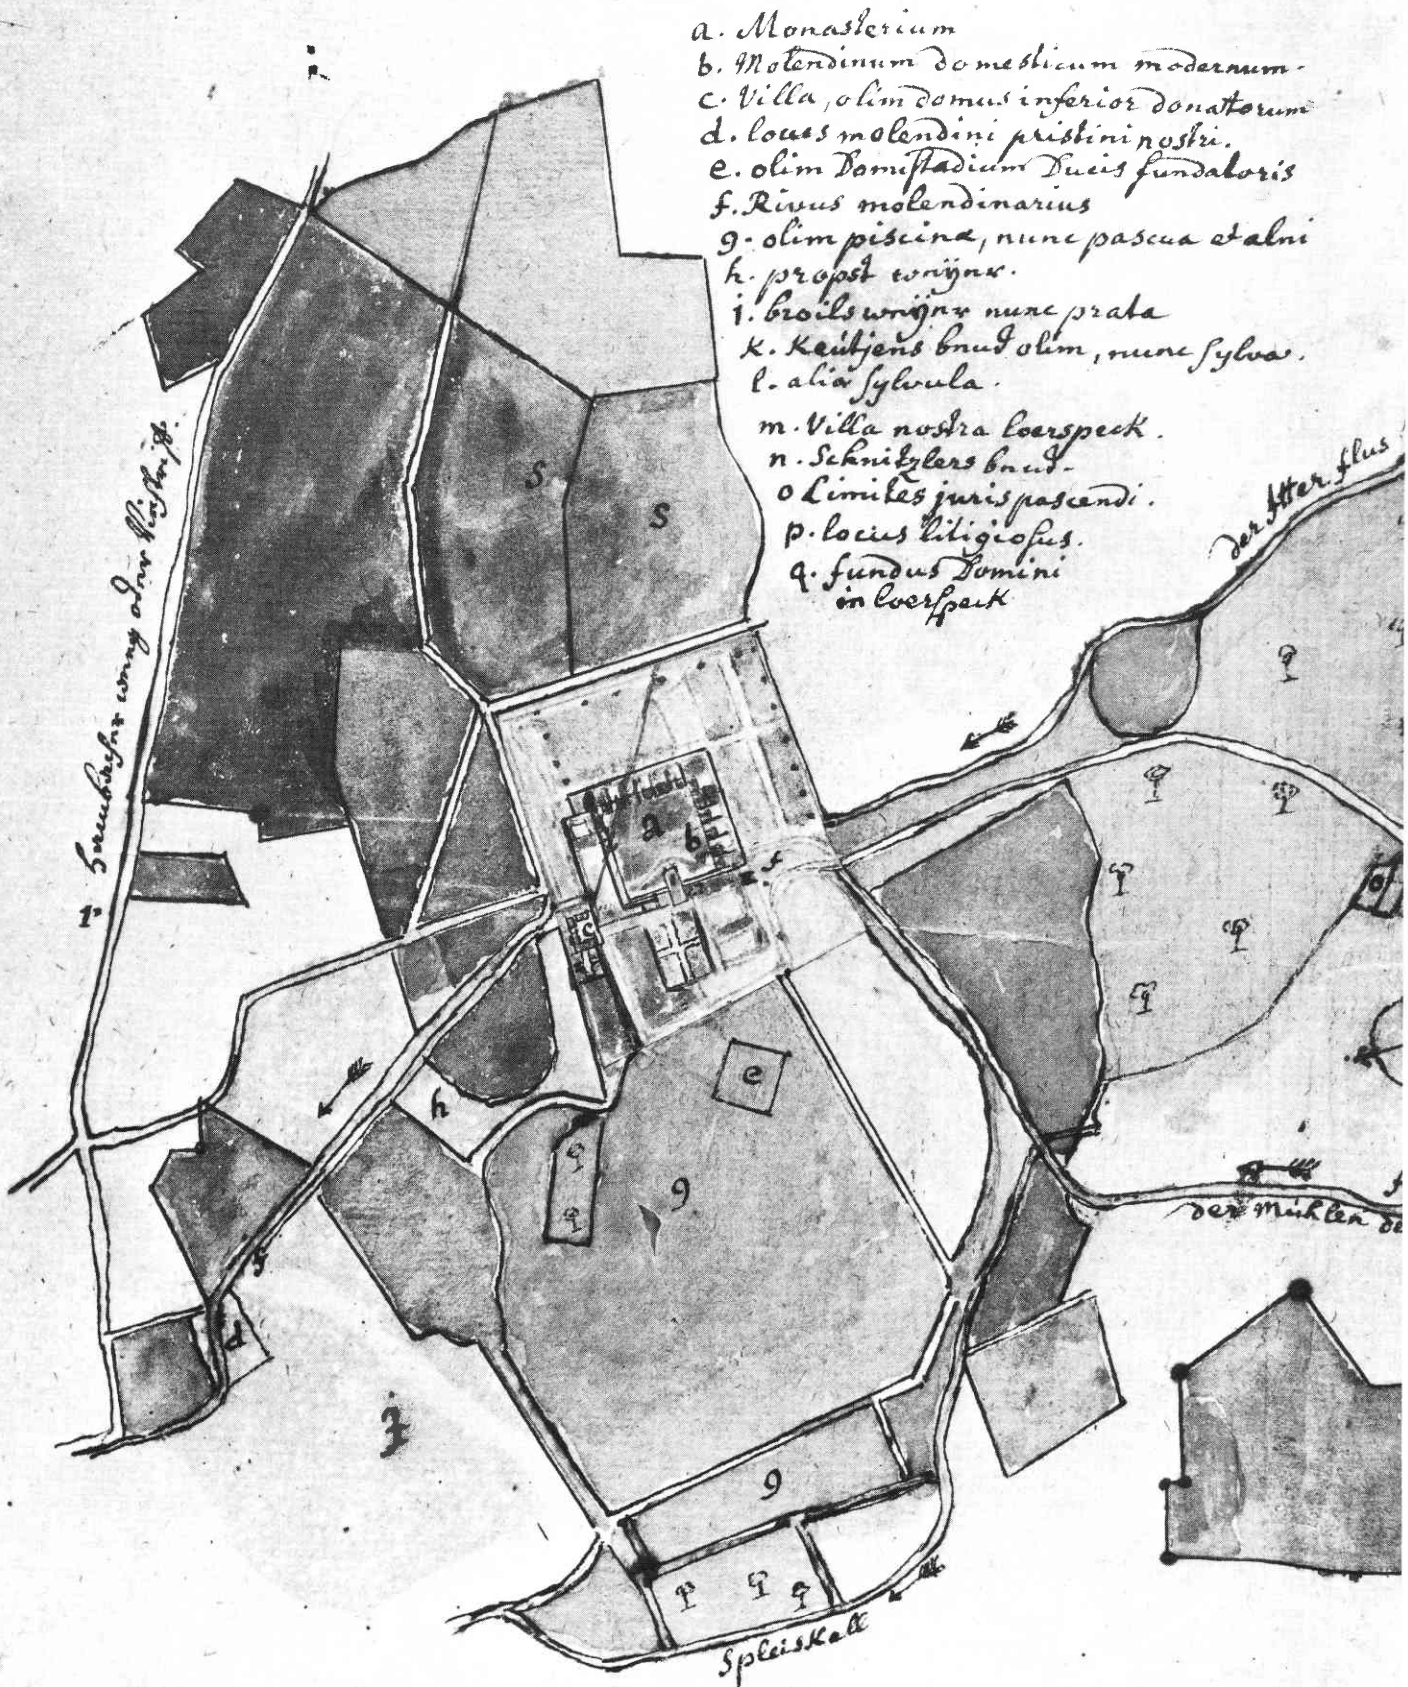 a. Monasterium
b. Molendinum domesticum modernum.
c. Villa, olim domus inferior donattorum
d. locus molendini pristini nostri.
e. olim Domistadium Ducis fundatoris
f. Rivus molendinarius
g. olim piscinæ, nunc pascua et alni
h. propst
j. nunc prata
k. Keutjens bend olim, nunc sylva.
l. alia sylvula.
m. Villa nostra loerspeck.
n. Schnitzlers bend.
o Limites juris pascendi.
p. locus litigiosus.
q. fundus Domini
in loerspeck
der Atter flus
S
S
a
b
f
c
o
e
h
g
der Mühlen
f
d
j
g
Spleiskall